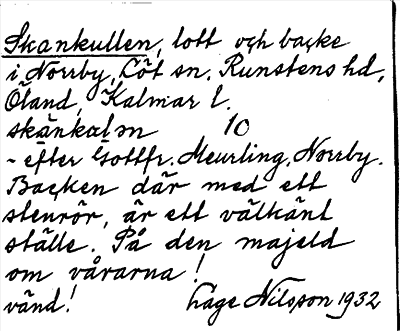 Skankullen, lott och backe
i Norrby, Löt sn. Runstens hd,
Öland, Kalmar l.
skánkal̥n 10
~ efter Gottfr. Meurling, Norrby.
Backen där med ett
stenrör, är ett välkänt
ställe. På den majeld
om vårarna!
vänd! Låge Nilsson 1932